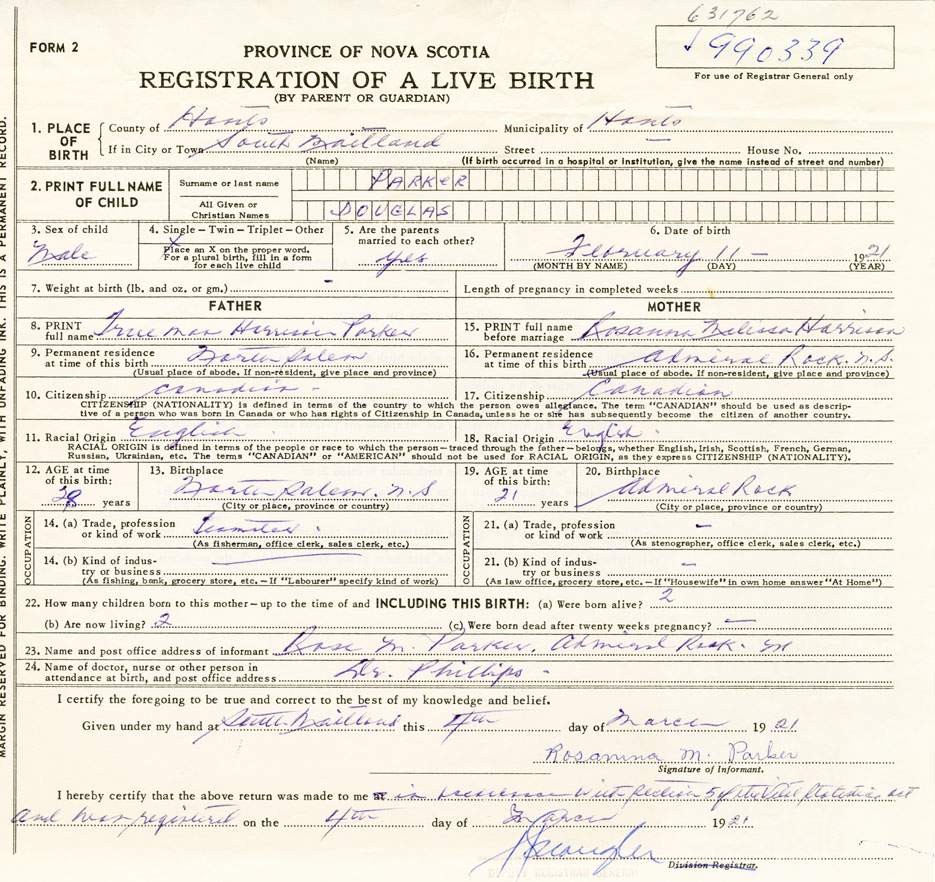 631762
990339
FORM 2
PROVINCE OF NOVA SCOTIA
For use of Registrar General only
REGISTRATION OF A LIVE BIRTH
(BY PARENT OR GUARDIAN)
MARGIN RESERVED FOR BINDING. WRITE PLAINLY, WITH UNFADING INK. THIS IS A PERMANENT RECORD.
1. PLACE OF BIRTH County of Hants Municipality of Hants
If in City or Town South Maitland Street — House No.
(Name) (If birth occurred in a hospital or institution, give the name instead of street and number)
2. PRINT FULL NAME OF CHILD
Surname or last name PARKER
All Given or Christian Names DOUGLAS
3. Sex of child Male
4. Single – Twin – Triplet – Other
Place an X on the proper word.
For a plural birth, fill in a form
for each live child
5. Are the parents
married to each other?
yes
6. Date of birth
February 11 – 1921
(MONTH BY NAME) (DAY) (YEAR)
7. Weight at birth (lb. and oz. or gm.) - Length of pregnancy in completed weeks
FATHER MOTHER
8. PRINT full name Trueman Harrison Parker
15. PRINT full name before marriage Rosanna Melissa Harrison
9. Permanent residence at time of this birth North Salem
(Usual place of abode. If non-resident, give place and province)
16. Permanent residence at time of this birth Admiral Rock. N.S.
(Usual place of abode. If non-resident, give place and province)
10. Citizenship Canadian - 17. Citizenship Canadian
CITIZENSHIP (NATIONALITY) is defined in terms of the country to which the person owes allegiance. The term "CANADIAN" should be used as descrip-
tive of a person who was born in Canada or who has rights of Citizenship in Canada, unless he or she has subsequently become the citizen of another country.
11. Racial Origin English - 18. Racial Origin English -
RACIAL ORIGIN is defined in terms of the people or race to which the person – traced through the father – belongs, whether English, Irish, Scottish, French, German,
Russian, Ukrainian, etc. The terms "CANADIAN" or "AMERICAN" should not be used for RACIAL ORIGIN, as they express CITIZENSHIP (NATIONALITY).
12. AGE at time of this birth: 28 years
13. Birthplace
North Salem. N.S
(City or place, province or country)
19. AGE at time of this birth: 21 years
20. Birthplace
Admiral Rock
(City or place, province or country)
OCCUPATION
14. (a) Trade, profession or kind of work Teamster
(As fisherman, office clerk, sales clerk, etc.)
14. (b) Kind of indus-
try or business —
(As fishing, bank, grocery store, etc. – If "Labourer" specify kind of work)
OCCUPATION
21. (a) Trade, profession or kind of work —
(As stenographer, office clerk, sales clerk, etc.)
21. (b) Kind of indus-
try or business —
(As law office, grocery store, etc. – If "Housewife" in own home answer "At Home")
22. How many children born to this mother – up to the time of and INCLUDING THIS BIRTH: (a) Were born alive? 2
(b) Are now living? 2 (c) Were born dead after twenty weeks pregnancy? —
23. Name and post office address of informant Rose M. Parker, Admiral Rock.
24. Name of doctor, nurse or other person in
attendance at birth, and post office address Dr. Phillips -
I certify the foregoing to be true and correct to the best of my knowledge and belief.
Given under my hand at South Maitland this 4th day of March 1921
Rosanna M. Parker
Signature of Informant.
I hereby certify that the above return was made to me in accordance with Section 5 of the Vital Statistics act
and was registered on the 4th day of March 1921
Division Registrar.
DEPUTY REGISTRAR GENERAL